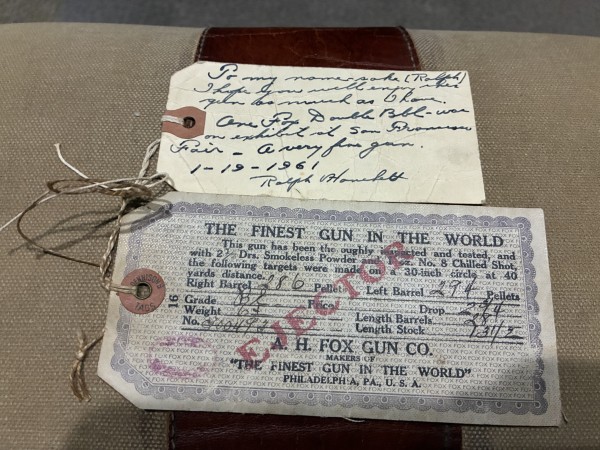 To my namesake (Ralph)
I hope you will enjoy this
gun as much as I have.
One Fox Double Bbl - was
on exhibit at San Francisco
Fair - A very fine gun.
1-19-1961
Ralph
THE FINEST GUN IN THE WORLD
This gun has been thoroughly inspected and tested, and
with Drs. Smokeless Powder and oz. No. 8 Chilled Shot,
the following targets were made in a 30-inch circle at 40
yards distance.
Right Barrel 286 Pellets Left Barrel 294 Pellets
16
Grade Price Drop
Weight Length Barrels
No. Length Stock
EJECTOR
A. H. FOX GUN CO.
MAKERS OF
"THE FINEST GUN IN THE WORLD"
PHILADELPHIA, PA., U. S. A.